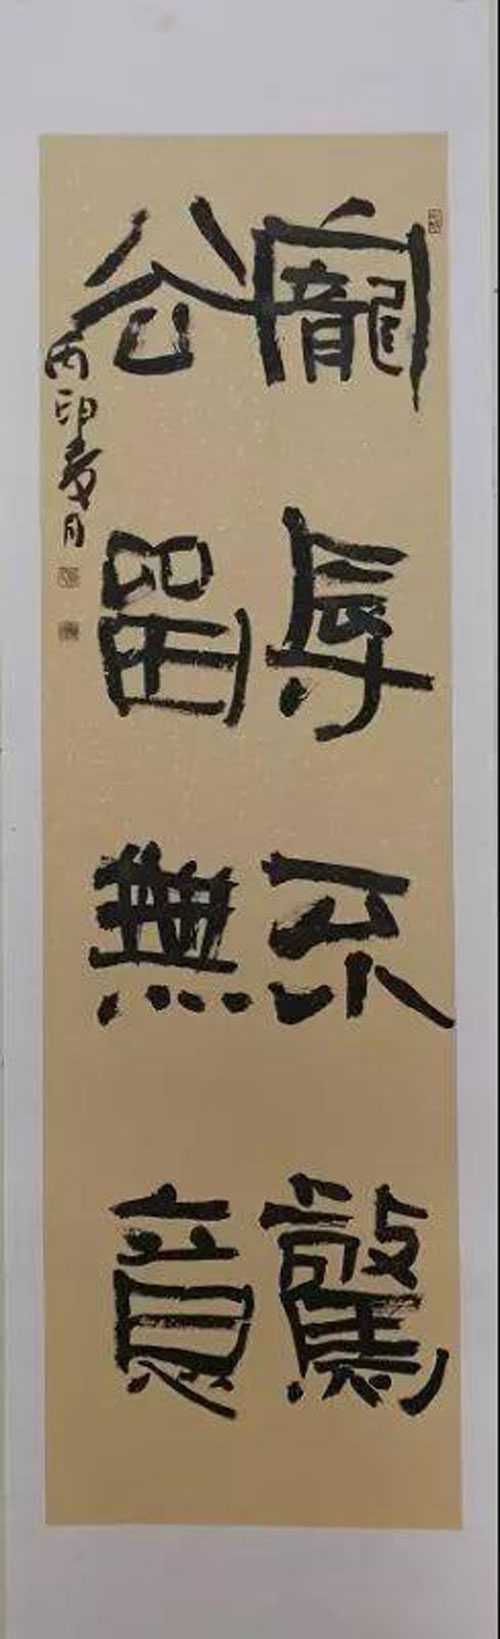 寵辱不驚
去留無意
丙申夏月